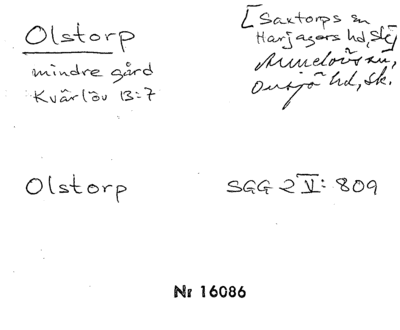 Olstorp
mindre gård
Kvärlöv 13:7
[Saxtorps sn
Harjagers hd, Sk]
Annelövs sn,
Onsjö hd, Sk.
Olstorp SGG 2 V: 809
Nr 16086